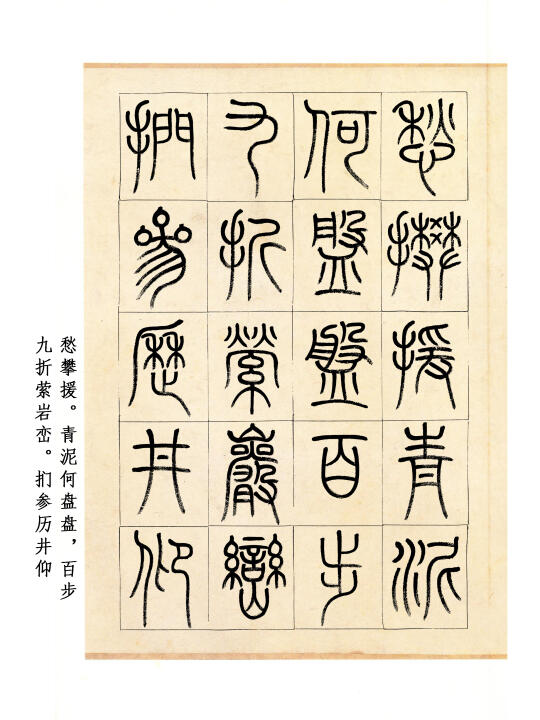 愁攀援青泥
何盤盤百步
九折縈巖巒
捫參歷井仰
愁攀援。青泥何盘盘，百步
九折萦岩峦。扪参历井仰